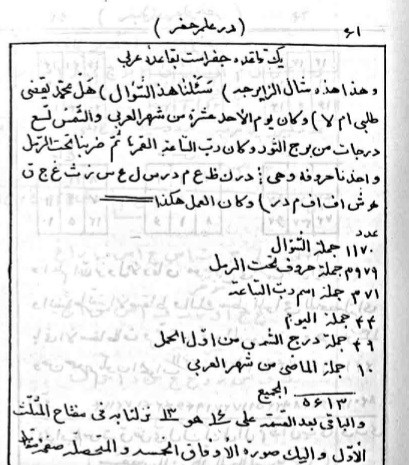 ٤١ (در علم جفر)
یک قاعده جفر است بقاعدۀ عربی
وهذا هذه مثال الزایرجه) سئلنا هذ السّؤال) هل محمّد یقضی
طلبی ام لا) وکان یوم الاحد عشرة من شهر العربی والشّمس تسع
درجات من برج الثور وکان ربّ السّاعة القمر ثمّ ضربنا تحت الرّمل
واخذنا حروفه وهی در ک ظ ع م د ر س ل ع س ز ث غ ج ق
ه ش ا ف ا ف م د ر) وکان العمل هکذا
عدد
١١٧٠ جملة السّؤال
٣٩٧٩ جملة حروف تحت الرمل
٣٧١ جملة اسم ربّ السّاعة
٤٤ جملة الیوم
٤٩ جملة درج الشّمس من اوّل الحمل
١٠ جملة الماضی من شهر العربی
٥٦١٣ الجمیع
والباقی بعد القسمة علی ١٤ هو ١٣ نزلنا به فی مفتاح المثلّث
الاوّل والیک صورة الاوفاق المجسد والمتحصله